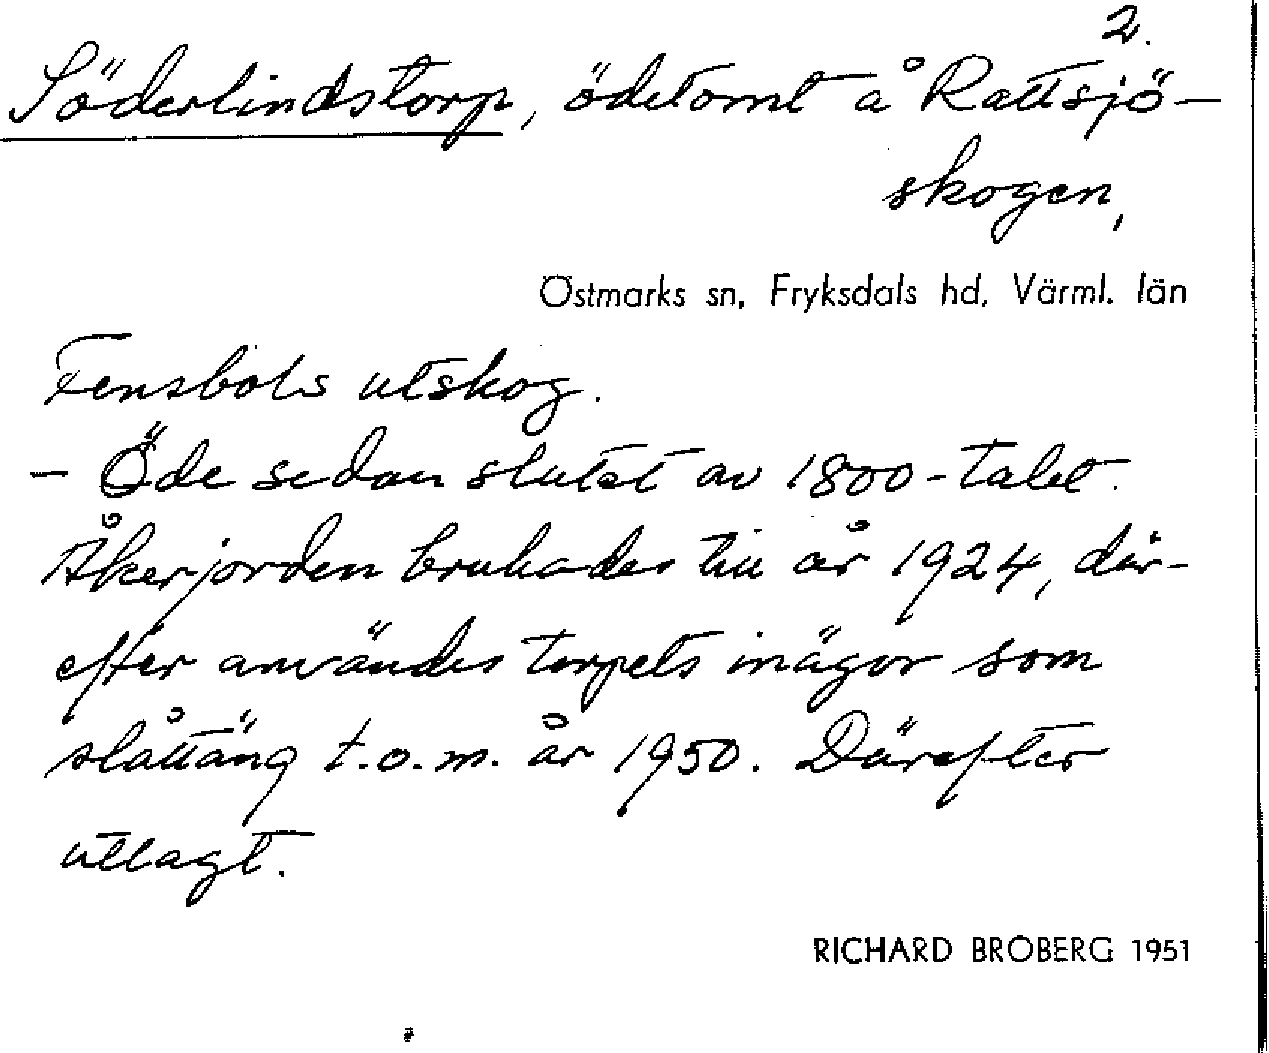 2.
Söderlindstorp, ödetomt å Rattsjö-
skogen,
Östmarks sn, Fryksdals hd, Värml. län
Fensbols utskog.
- Öde sedan slutet av 1800-talet.
Åkerjorden brukades till år 1924, där-
efter användes torpets inägor som
slåttäng t.o.m. år 1950. Därefter
utlagt.
RICHARD BROBERG 1951